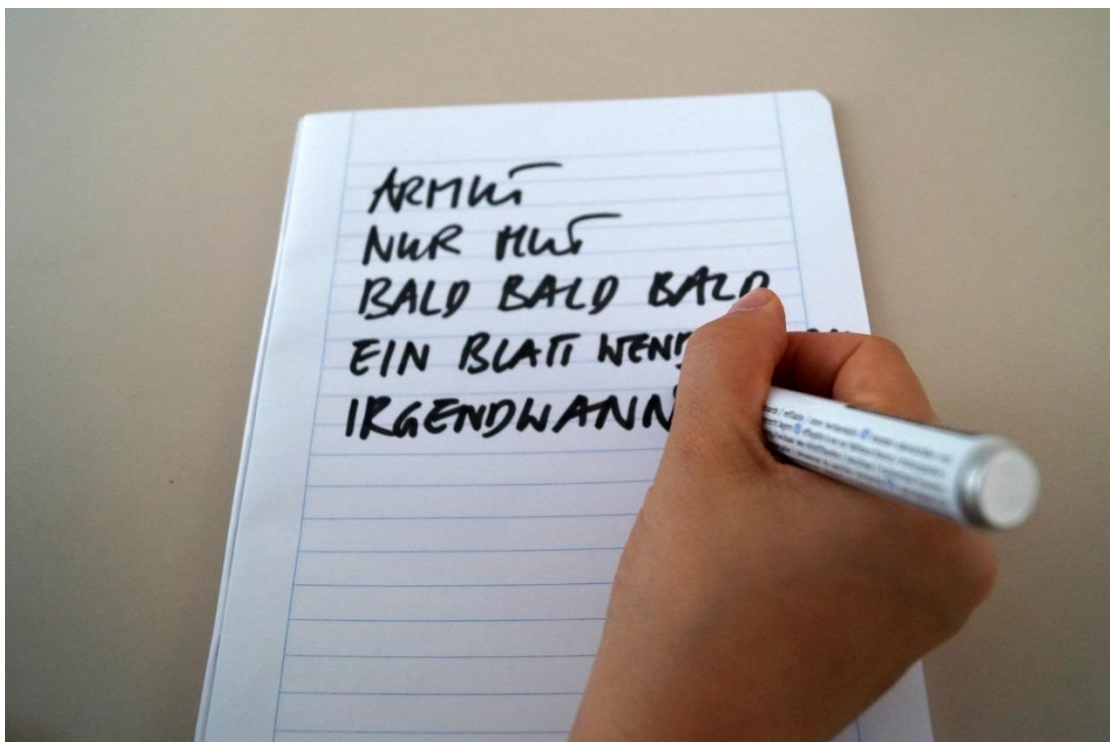 ARMUT
NUR MUT
BALD BALD BALD
EIN BLATT
IRGENDWANN